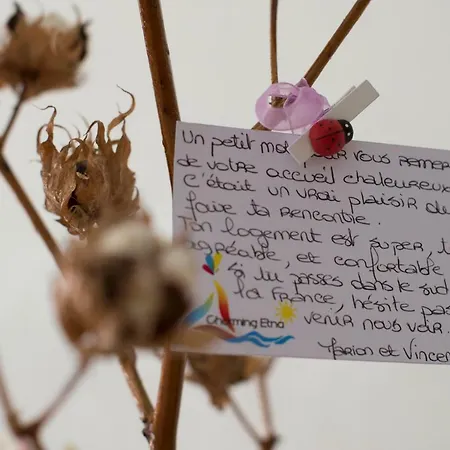 Un petit mot pour vous remer
de votre accueil chaleureux
c'était un vrai plaisir de
faire ta rencontre.
Ton logement est super, t
agréable, et confortable
si tu passes dans le sud
la France, hésite pas
venir nous voir.
Marion et Vincen
Charming Etna